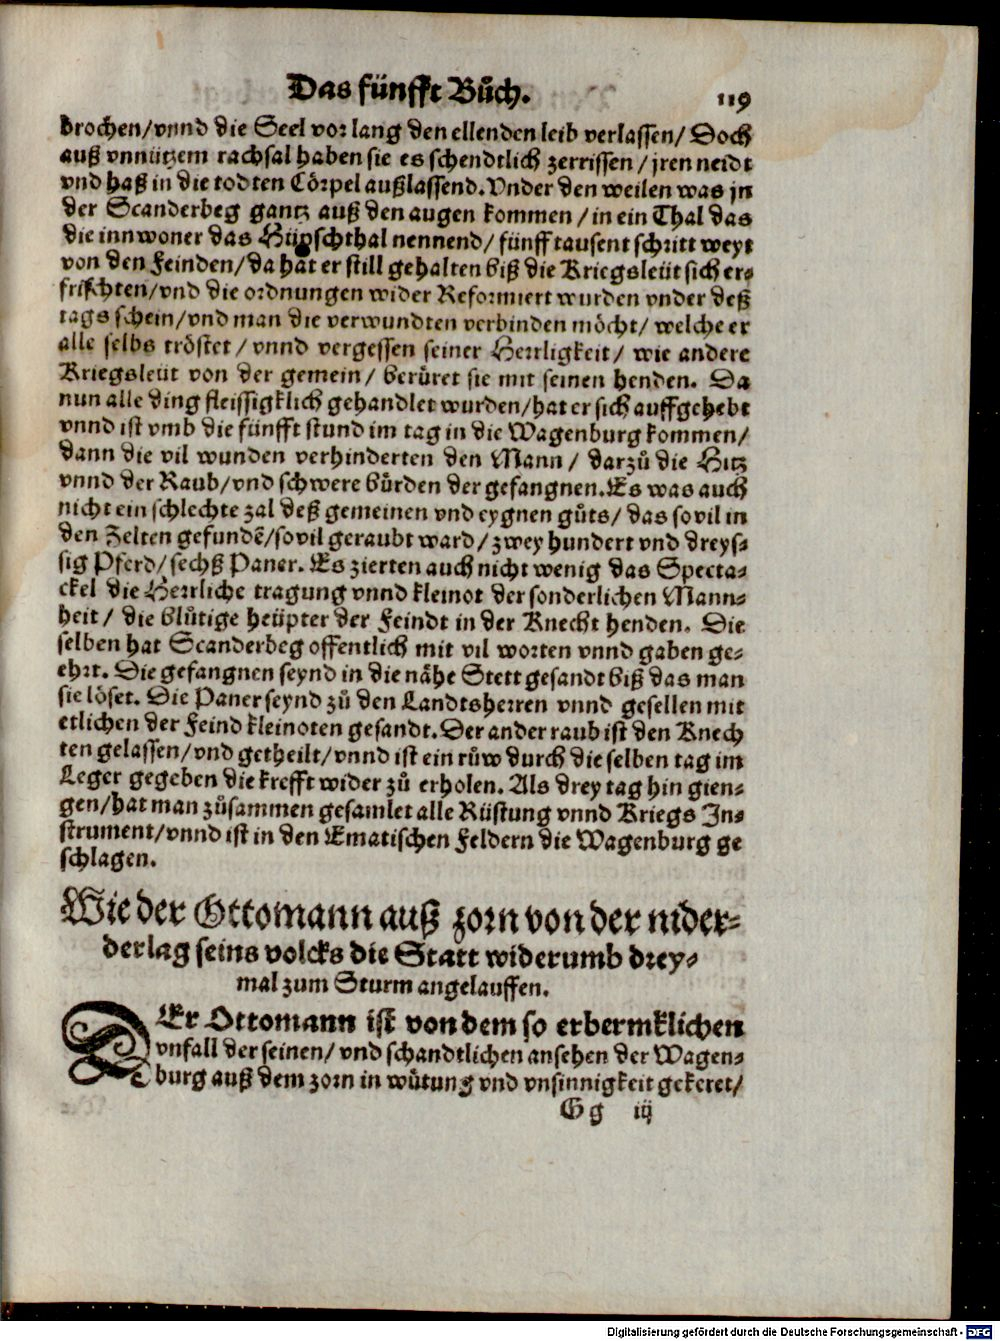 Das fünfft Bůch. 119
brochen/vnnd die Seel vor lang den ellenden leib verlassen/ Doch
auß vnnützem rachsal haben sie es schendtlich zerrissen/ jren neidt
vnd haß in die todten Cörpel außlassend. Vnder den weilen was jn
der Scanderbeg gantz auß den augen kommen/ in ein Thal das
die innwoner das Hüpschthal nennend/ fünff tausent schritt weyt
von den Feinden/ da hat er still gehalten biß die Kriegsleüt sich er-
frischten/ vnd die ordnungen wider Reformiert wurden vnder deß
tags schein/ vnd man die verwundten verbinden möcht/ welche er
alle selbs tröstet/ vnnd vergessen seiner Herrligkeit/ wie andere
Kriegsleüt von der gemein/ berüret sie mit seinen henden. Da
nun alle ding fleissigklich gehandlet wurden/ hat er sich auffgehebt
vnnd ist vmb die fünfft stund im tag in die Wagenburg kommen/
dann die vil wunden verhinderten den Mann/ darzů die Hitz
vnnd der Raub/ vnd schwere bürden der gefangnen. Es was auch
nicht ein schlechte zal deß gemeinen vnd eygnen gůts/ das so vil in
den Zelten gefundē/ so vil geraubt ward/ zwey hundert vnd dreys-
sig Pferd/ sechß Paner. Es zierten auch nicht wenig das Specta-
ckel die Herrliche tragung vnnd kleinot der sonderlichen Mann-
heit/ die blůtige heüpter der Feindt in der Knecht henden. Die
selben hat Scanderbeg offentlich mit vil worten vnnd gaben ge-
ehrt. Die gefangnen seynd in die nähe Stett gesandt biß das man
sie löset. Die Paner seynd zů den Landtsherren vnnd gesellen mit
etlichen der Feind kleinoten gesandt. Der ander raub ist den Knech
ten gelassen/ vnd getheilt/ vnnd ist ein růw durch die selben tag im
Leger gegeben die krefft wider zů erholen. Als drey tag hin gien-
gen/ hat man zůsammen gesamlet alle Rüstung vnnd Kriegs In-
strument/ vnnd ist in den Ematischen Feldern die Wagenburg ge
schlagen.
Wie der Ottomann auß zorn von der nider-
derlag seins volcks die Statt widerumb drey-
mal zum Sturm angelauffen.
DEr Ottomann ist von dem so erbermklichen
vnfall der seinen/ vnd schandtlichen ansehen der Wagen-
burg auß dem zorn in wütung vnd vnsinnigkeit gekeret/
Gg iij
Digitalisierung gefördert durch die Deutsche Forschungsgemeinschaft - DFG